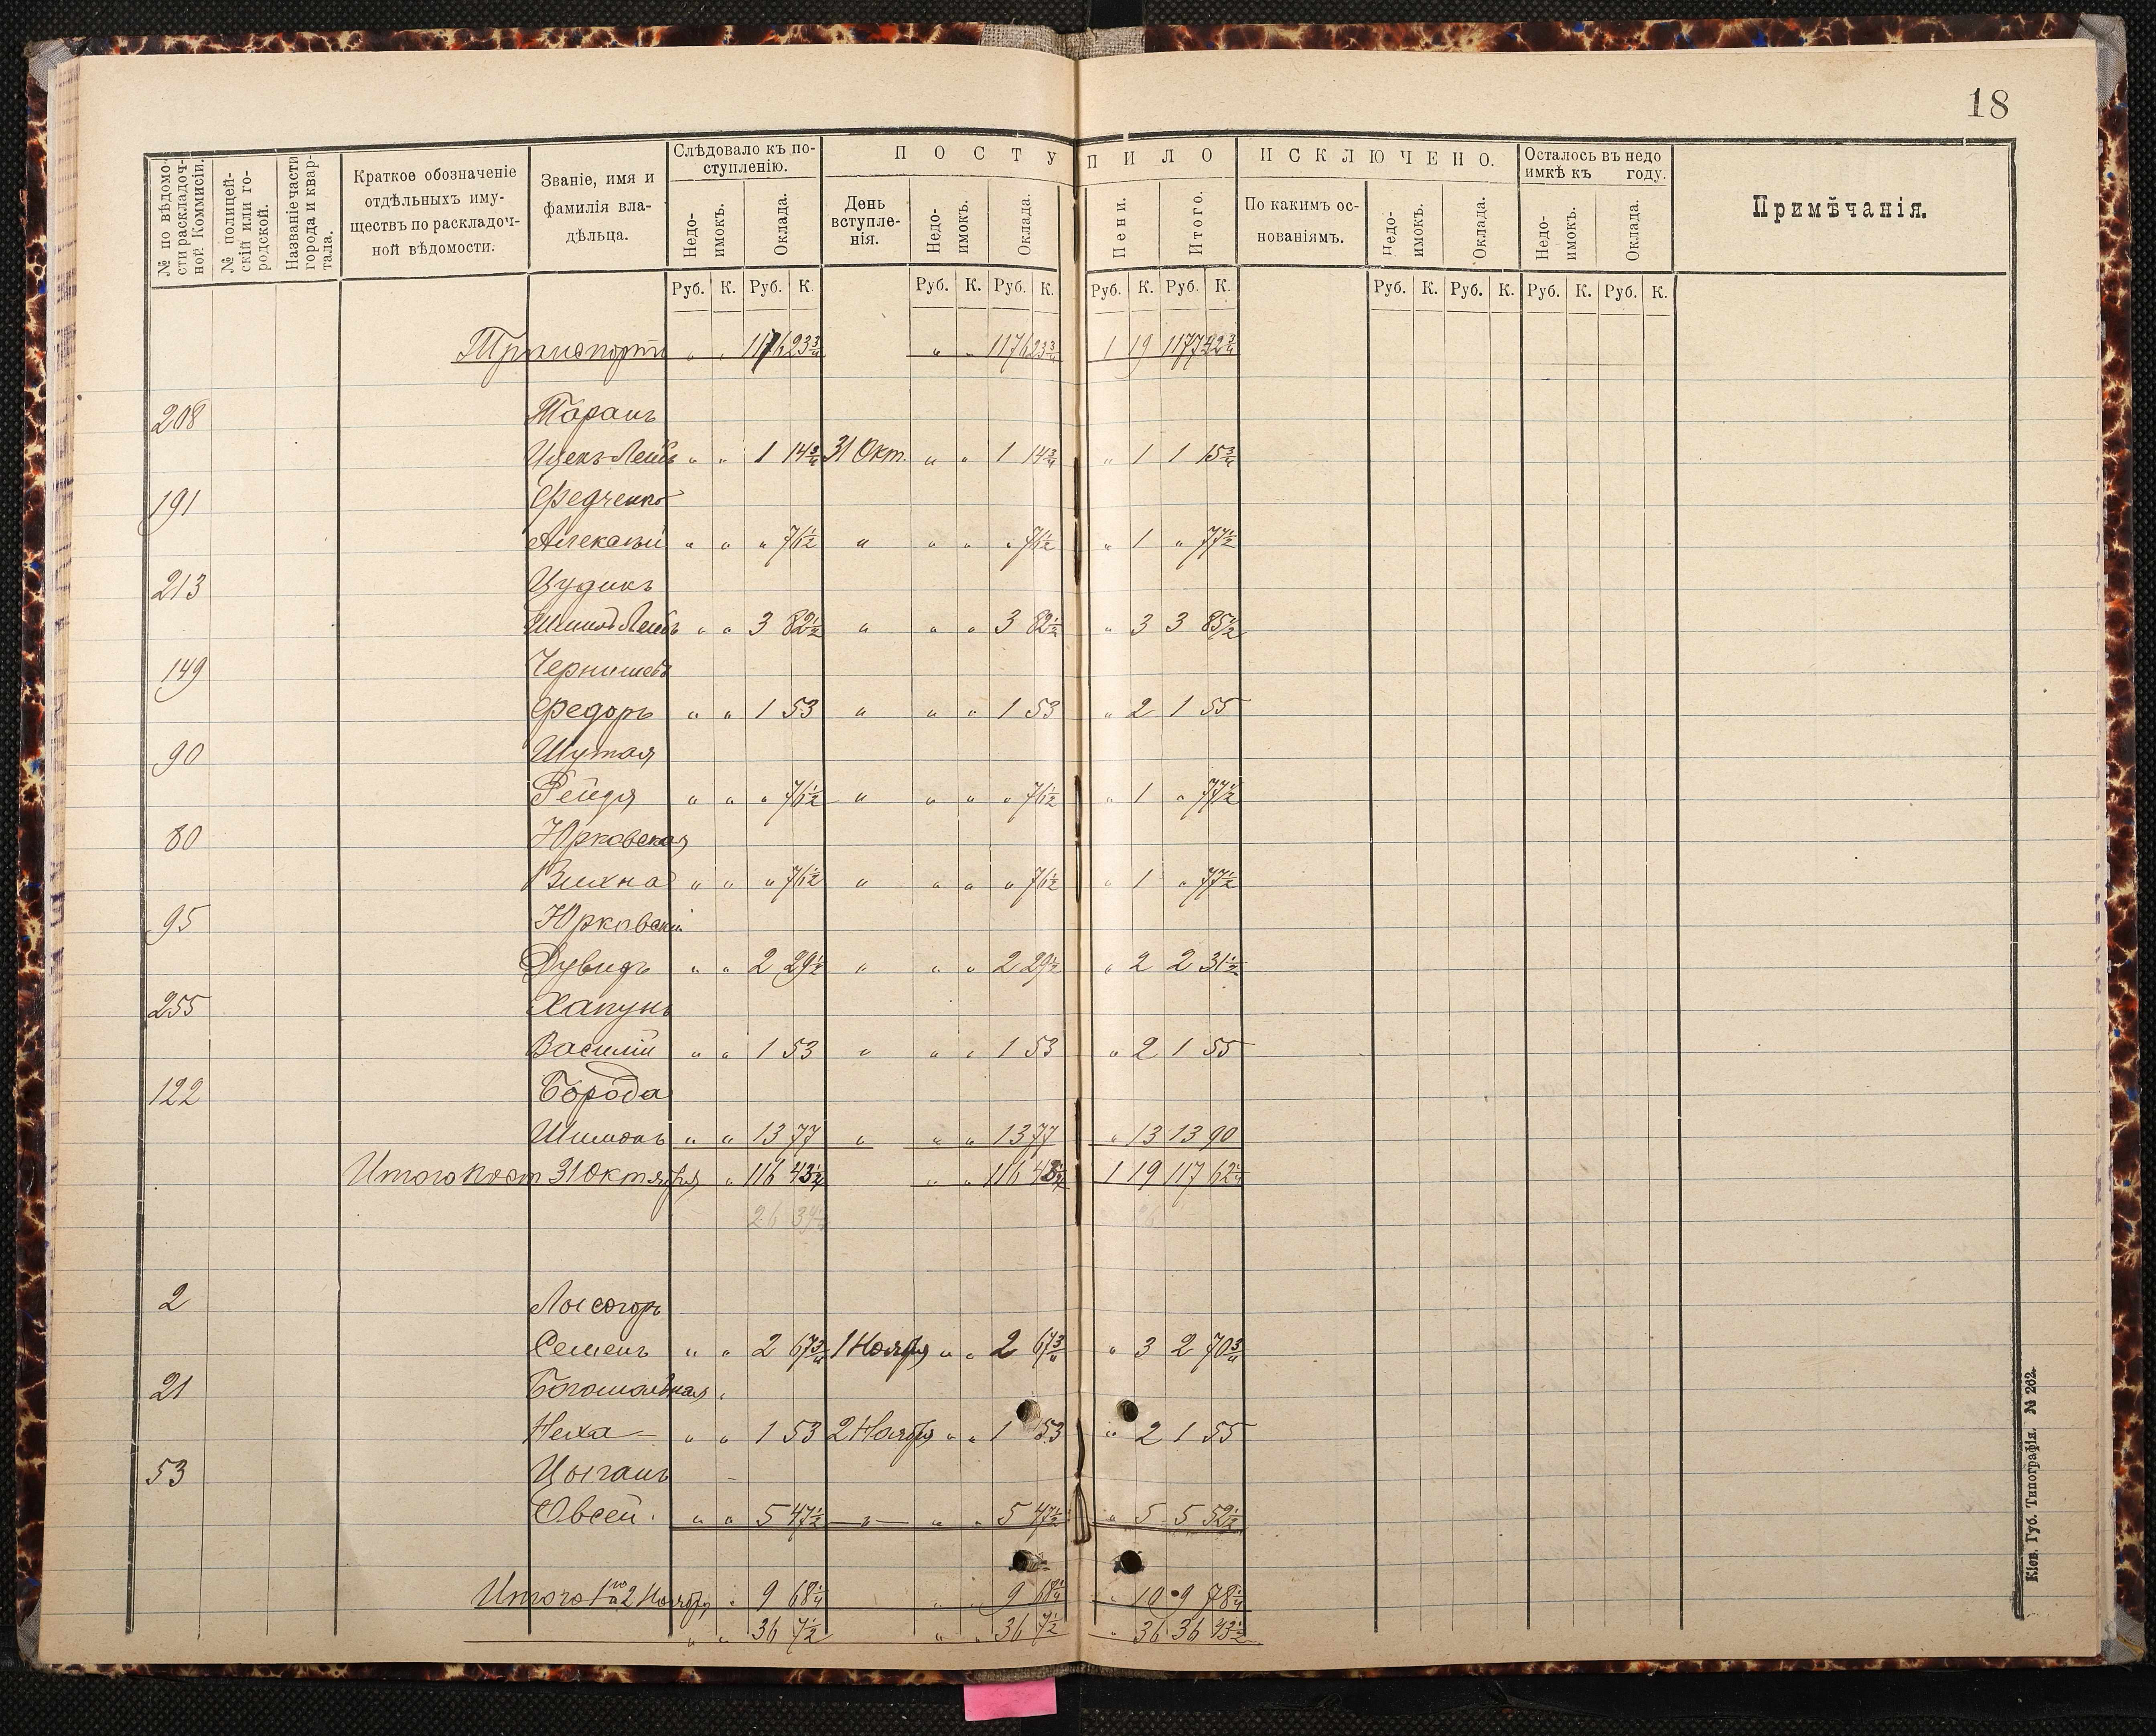 18
№ по вѣдомо-
сти раскладоч-
ной Коммисіи.
№ полицей-
скій или го-
родской.
Названіе части
города и квар-
тала.
Краткое обозначеніе
отдѣльныхъ иму-
ществъ по раскладоч-
ной вѣдомости.
Званіе, имя и
фамилія вла-
дѣльца.
Слѣдовало къ по-
ступленію.
Недо-
имокъ.
Оклада.
ПОСТУПИЛО
День
вступле-
нія.
Недо-
имокъ.
Оклада.
Пени.
Итого.
ИСКЛЮЧЕНО.
По какимъ ос-
нованіямъ.
Недо-
имокъ.
Оклада.
Осталось въ недо
имкѣ къ году.
Недо-
имокъ.
Оклада.
Примѣчанія.
Руб. К. Руб. К. Руб. К. Руб. К. Руб. К. Руб. К. Руб. К. Руб. К. Руб. К. Руб. К.
Транспортъ " " 1176 23 3/4 " " 1176 23 3/4 1 19 1177 42 3/4
208 Таранъ
Ицекъ-Лейб " " 1 14 3/4 31 Окт. " " 1 14 3/4 " 1 1 15 3/4
191 Федченко
Алексѣй " " " 76 1/2 " " " " 76 1/2 " 1 " 77 1/2
213 Цудикъ
Лейбъ " " 3 82 1/2 " " " 3 82 1/2 " 3 3 85 1/2
149 Чернишевъ
Федоръ " " 1 53 " " " 1 53 " 2 1 55
90 Шутая
Рейдя " " " 76 1/2 " " " " 76 1/2 " 1 " 77 1/2
80 Юрковская
Вихна " " " 76 1/2 " " " " 76 1/2 " 1 " 77 1/2
95 Юрковскій
Дувидъ " " 2 29 1/2 " " " 2 29 1/2 " 2 2 31 1/2
255 Хапунъ
Василій " " 1 53 " " " 1 53 " 2 1 55
122 Борода
Шимонъ " " 13 77 " " " 13 77 " 13 13 90
Итого пост 31 Октября " 116 43 1/4 " " 116 43 1/4 1 19 117 62 1/4
2 Лысогоръ
Семенъ " " 2 67 3/4 1 Ноября " " 2 67 3/4 " 3 2 70 3/4
21 Богомольная
Неха " " 1 53 2 Ноября " " 1 53 " 2 1 55
53 Цыганъ
Овсей " " 5 47 1/2 " " " 5 47 1/2 " 5 5 52 1/2
Итого 1 и 2 Ноября " 9 68 1/4 " " 9 68 1/4 " 10 9 78 1/4
" " 36 7 1/2 " " 36 7 1/2 " 36 36 43 1/2
Кіев. Губ. Типографія. № 262.